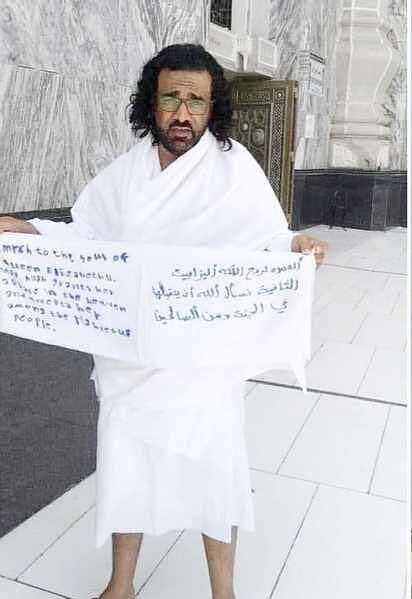 mrah to the soul of
Queen Elizabeth II.
Allah grants her
place in the heaven
and accepts her
among the Righteous
people.
العمرة لروح الملكة إليزابيث
الثانية نسأل الله أن يتقبلها
في الجنة ومن الصالحين